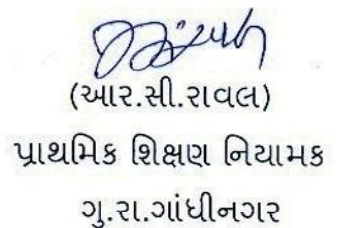 (આર.સી.રાવલ)
પ્રાથમિક શિક્ષણ નિયામક
ગુ.રા.ગાંધીનગર